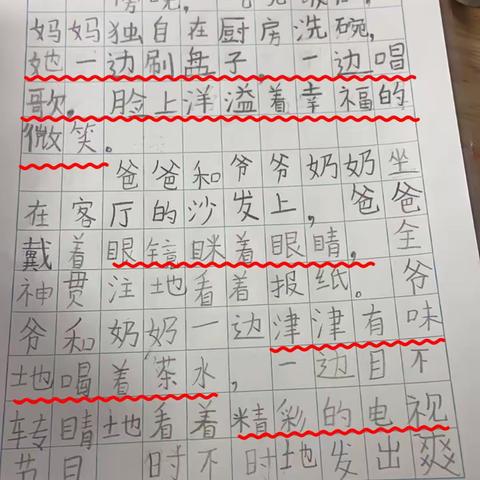 妈妈独自在厨房洗碗，
她一边刷盘子，一边唱
歌，脸上洋溢着幸福的
微笑。
爸爸和爷爷奶奶坐
在客厅的沙发上，爸爸
戴着眼镜眯着眼睛，全
神贯注地看着报纸。爷
爷和奶奶一边津津有味
地喝着茶水，一边目不
转睛地看着精彩的电视
节目，时不时地发出爽